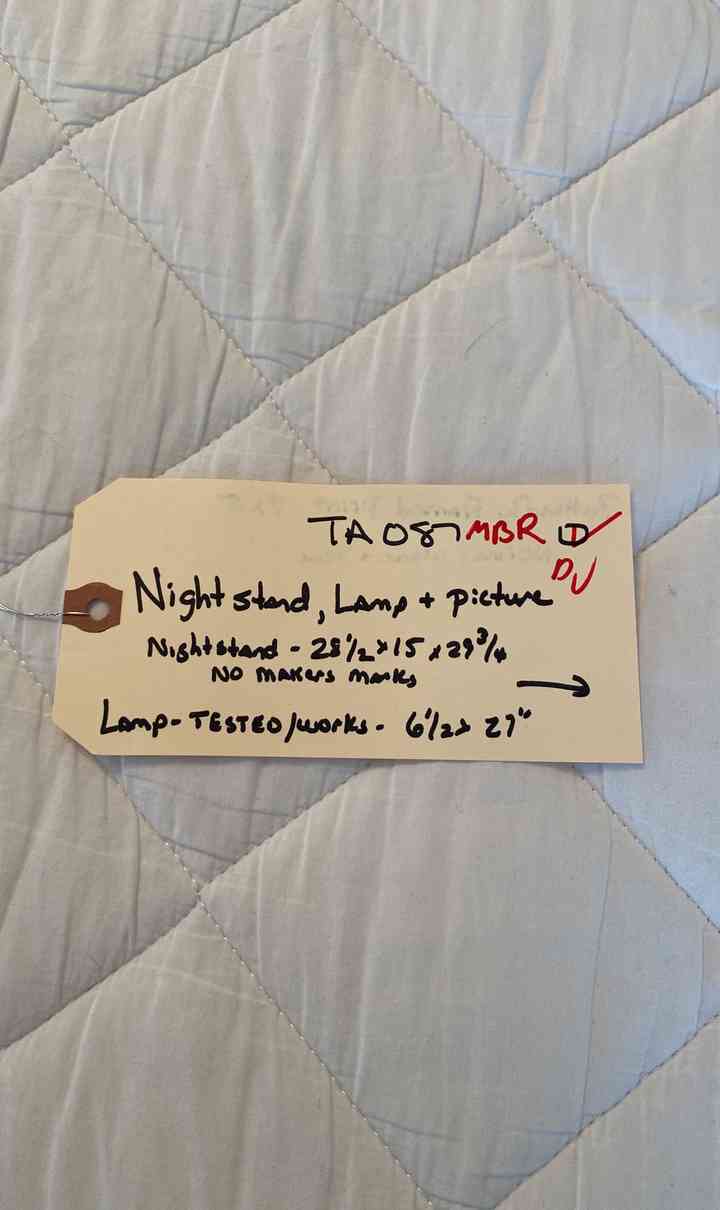 TA 087 MBR D
DV
Nightstand, Lamp + picture
Nightstand - 28 1/2 x 15 x 29 3/4
NO MAKERS MARKS
Lamp - TESTED/works - 6 1/2 x 27"